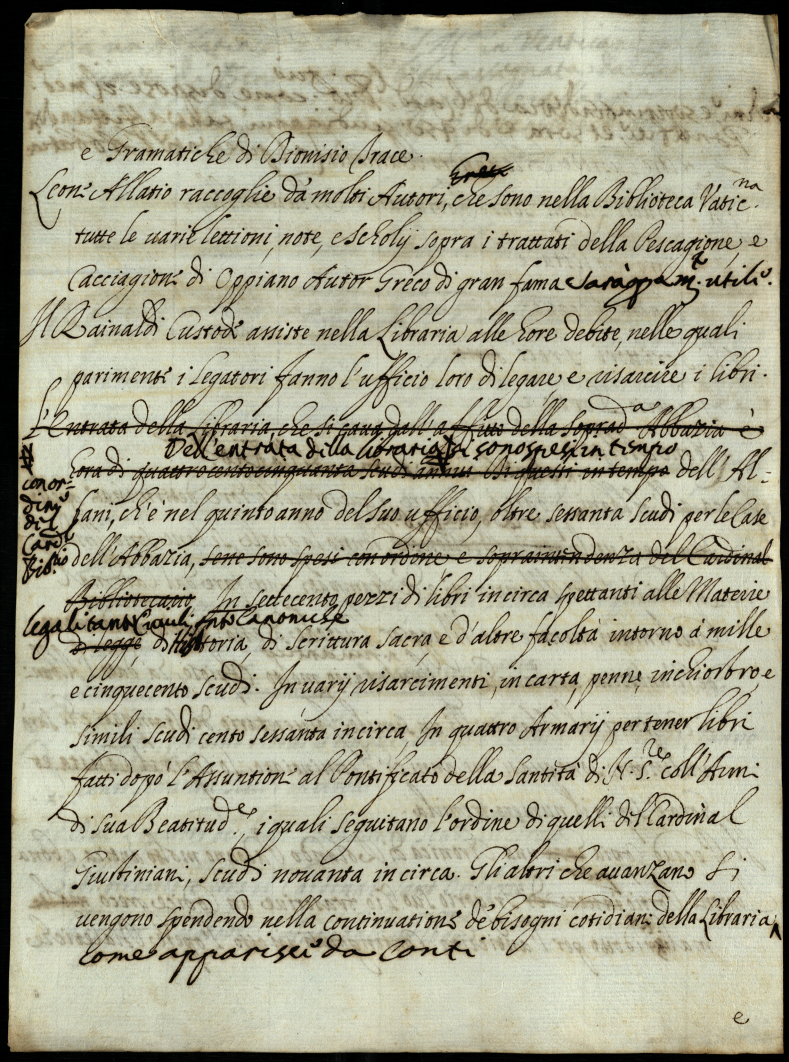 e Gramatiche di Dionisio Trace.
Greci
Leone Allatio raccoglie da molti Autori, che sono nella Biblioteca Vatic.na
tutte le varie lettioni, note, e scholij sopra i trattati della Pescagione, e
Cacciagione di Oppiano Autor Greco di gran fama e sarà m.to utile.
Il Rainaldi Custode assiste nella Libraria alle hore debite, nelle quali
parimente i legatori fanno l'ufficio loro di legare e risarcire i libri.
L'Entrata della Libraria, che si cava dall'affitto della soprad.a Abbazia è
Dell'entrata della libraria si sono spesi in tempo
hora di quattrocentocinquanta scudi annui. Di questi in tempo dell'Al-
con or-
dine
del
Card.
Bib.rio
fani, ch'è nel quinto anno del suo ufficio, oltre sessanta scudi per le Case
dell'Abbazia, se ne sono spesi con ordine e sopraintendenza del Cardinal
Bibliotecario In settecento pezzi di libri incirca spettanti alle Materie
legali tanto Civili, quanto Canoniche
di legge di Historia, di Scrittura sacra, e d'altre facoltà intorno à mille
e cinquecento scudi. In varij risarcimenti, in carta, penne, inchiostro, e
simili scudi cento sessanta incirca. In quattro Armarij per tener libri
fatti dopò l'Assuntione al Pontificato della Santità di N. S.re coll'Armi
di sua Beatitud.e, i quali seguitano l'ordine di quelli del Cardinal
Giustiniani, scudi novanta in circa. Gli altri che avanzano si
vengono spendendo nella continuatione de bisogni cotidiani della Libraria,
come apparisce da conti
e